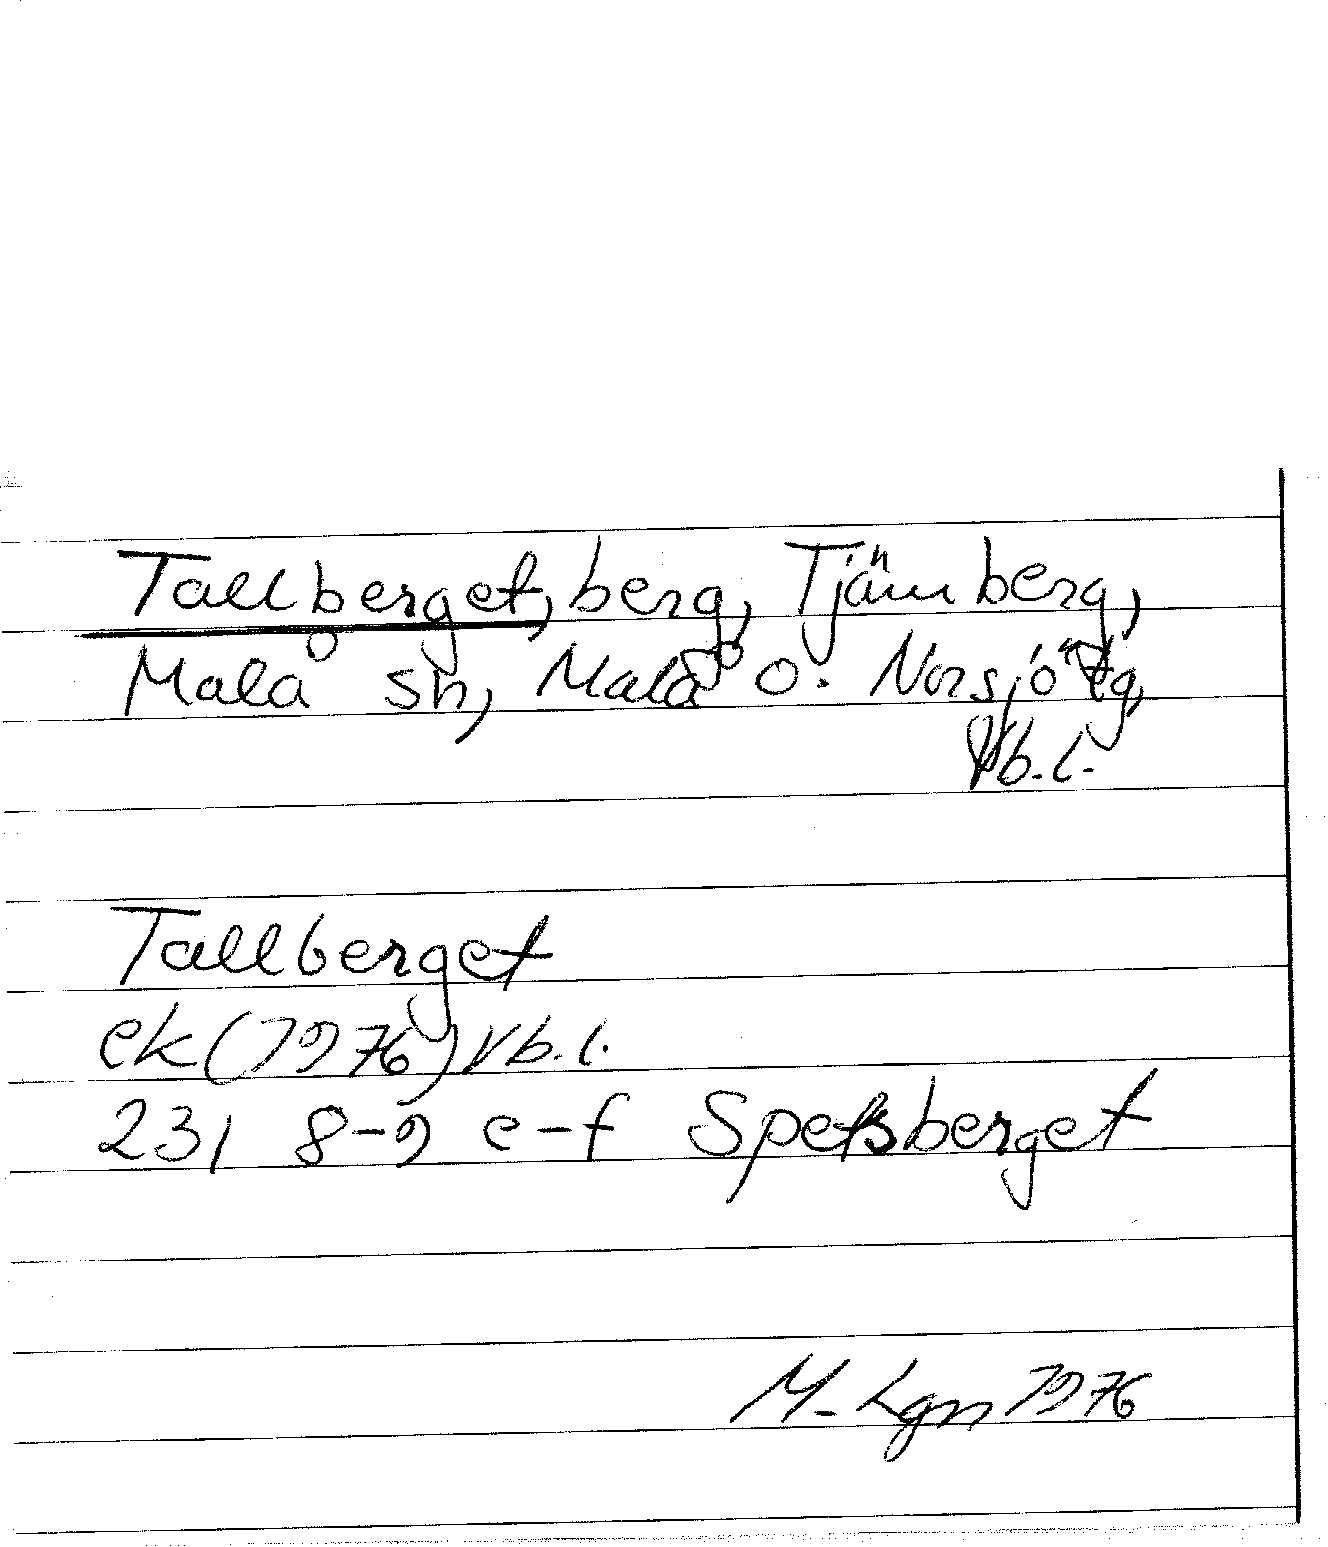 Tallberget, berg, Tjämberg,
Malå sn, Malå o. Norsjö tg,
Vb. l.
Tallberget
ek (1976) Vb. l.
231 8-9 e-f Spetsberget
M. Lgn 1976